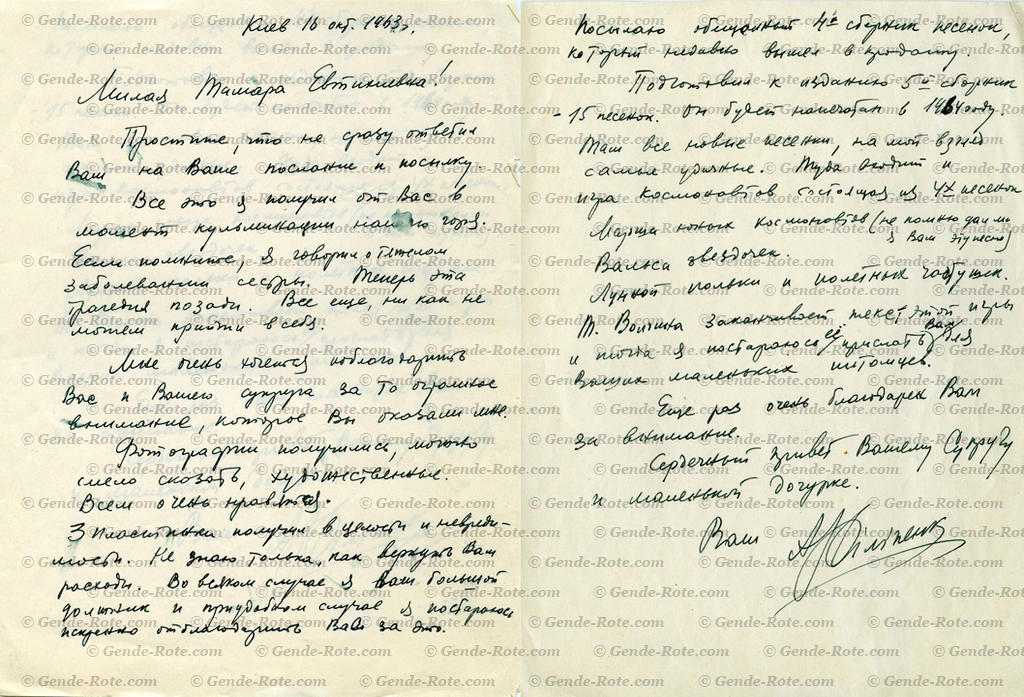 Киев 16 окт. 1963 г.
Милая Тамара Евтихиевна!
Простите, что не сразу ответил
Вам на Ваше послание и посылку.
Все это я получил от Вас в
момент кульминации нашего горя.
Если помните, я говорил о тяжелом
заболевании сестры. Теперь эта
трагедия позади. Все еще, ни как не
можем прийти в себя.
Мне очень хочется поблагодарить
Вас и Вашего супруга за то огромное
внимание, которое Вы оказали мне.
Фотографии получились, можно
смело сказать, художественные.
Всем очень нравятся.
3 пластинки получил в целости и невреди-
мости. Не знаю только, как вернуть Вам
расходы. Во всяком случае я Ваш большой
должник и при удобном случае я постараюсь
искренно отблагодарить Вас за это.
Посылаю обещанный 4й сборник песенок,
который недавно вышел в продажу.
Подготовил к изданию 5й сборник
- 15 песенок. Он будет напечатан в 1964 году.
Там все новые песенки, на мой взгляд
самые удачные. Туда входит и
игра космонавтов состоящая из 4х песенок
Марша юных космонавтов (не помню дал ли
я Вам эту песню)
Вальса звездочек.
Лунной польки и полётных частушек.
Т. Волгина заканчивает текст этой игры
и тогда я постараюсь её прислать Вам для
Ваших маленьких питомцев.
Еще раз очень благодарен Вам
за внимание.
Сердечный привет Вашему Супругу
и маленькой дочурке.
Ваш АФилипенко
© Gende-Rote.com